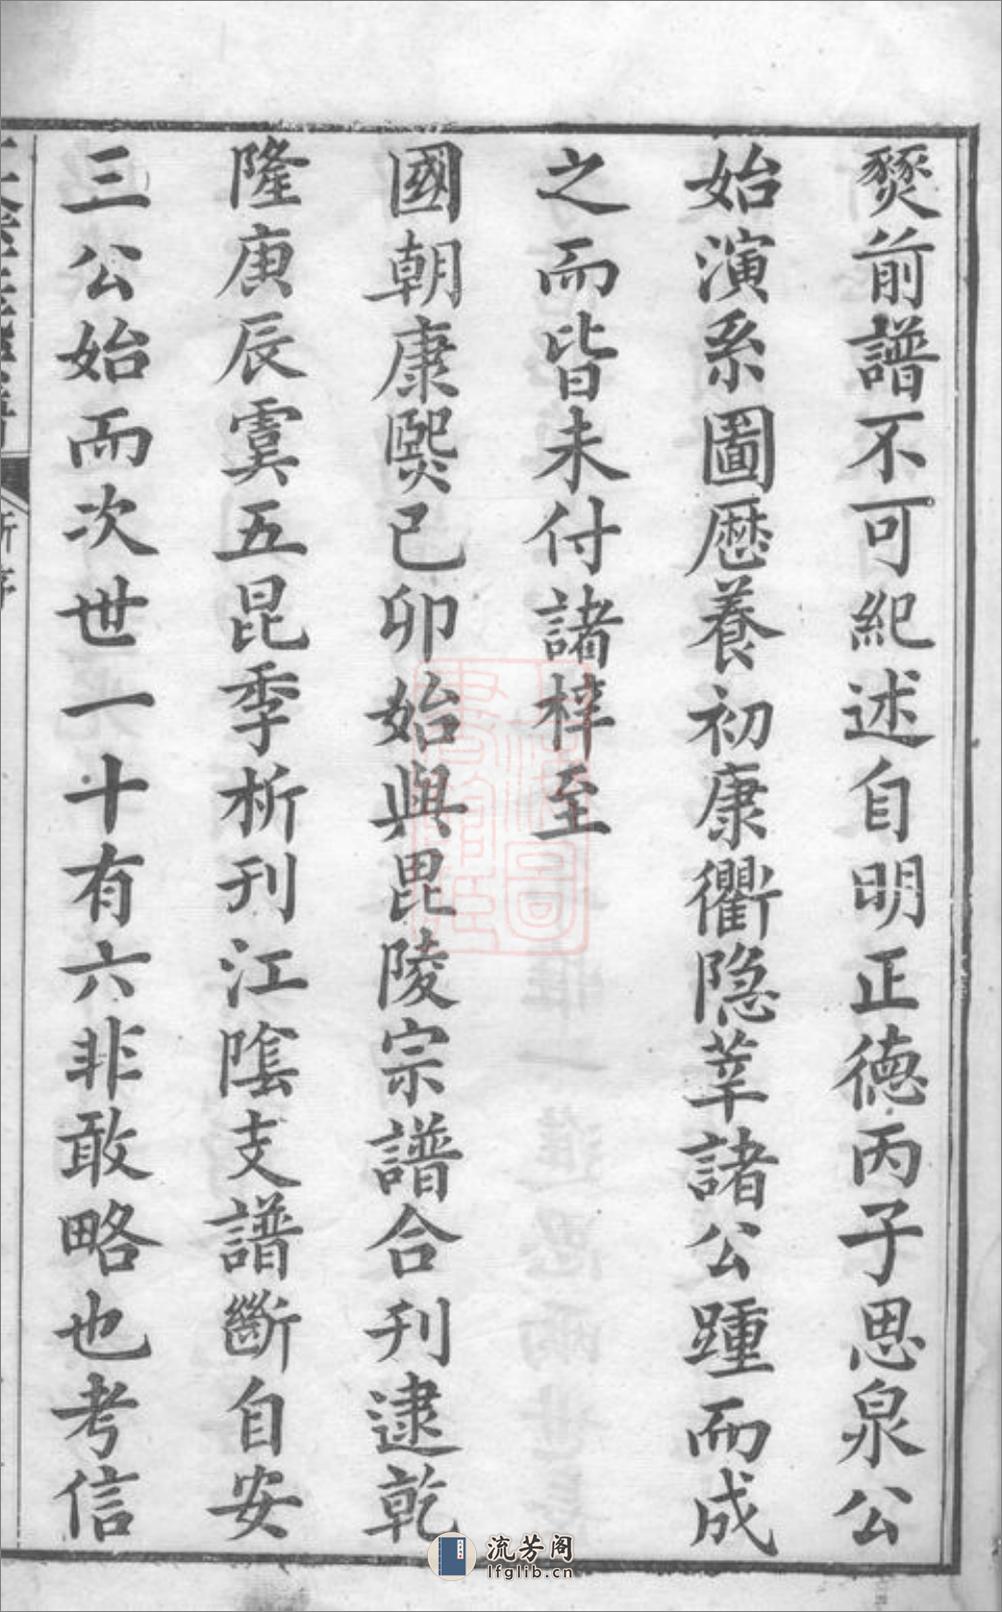 燹前譜不可紀述自明正德丙子思泉公
始演系圖歷養初康衢隐莘諸公踵而成
之而皆未付諸梓至
國朝康熙己卯始與毘陵宗譜合刊逮乾
隆庚辰虞五昆季析刊江隂支譜斷自安
三公始而次世一十有六非敢略也考信
流芳阁
lfglib.cn